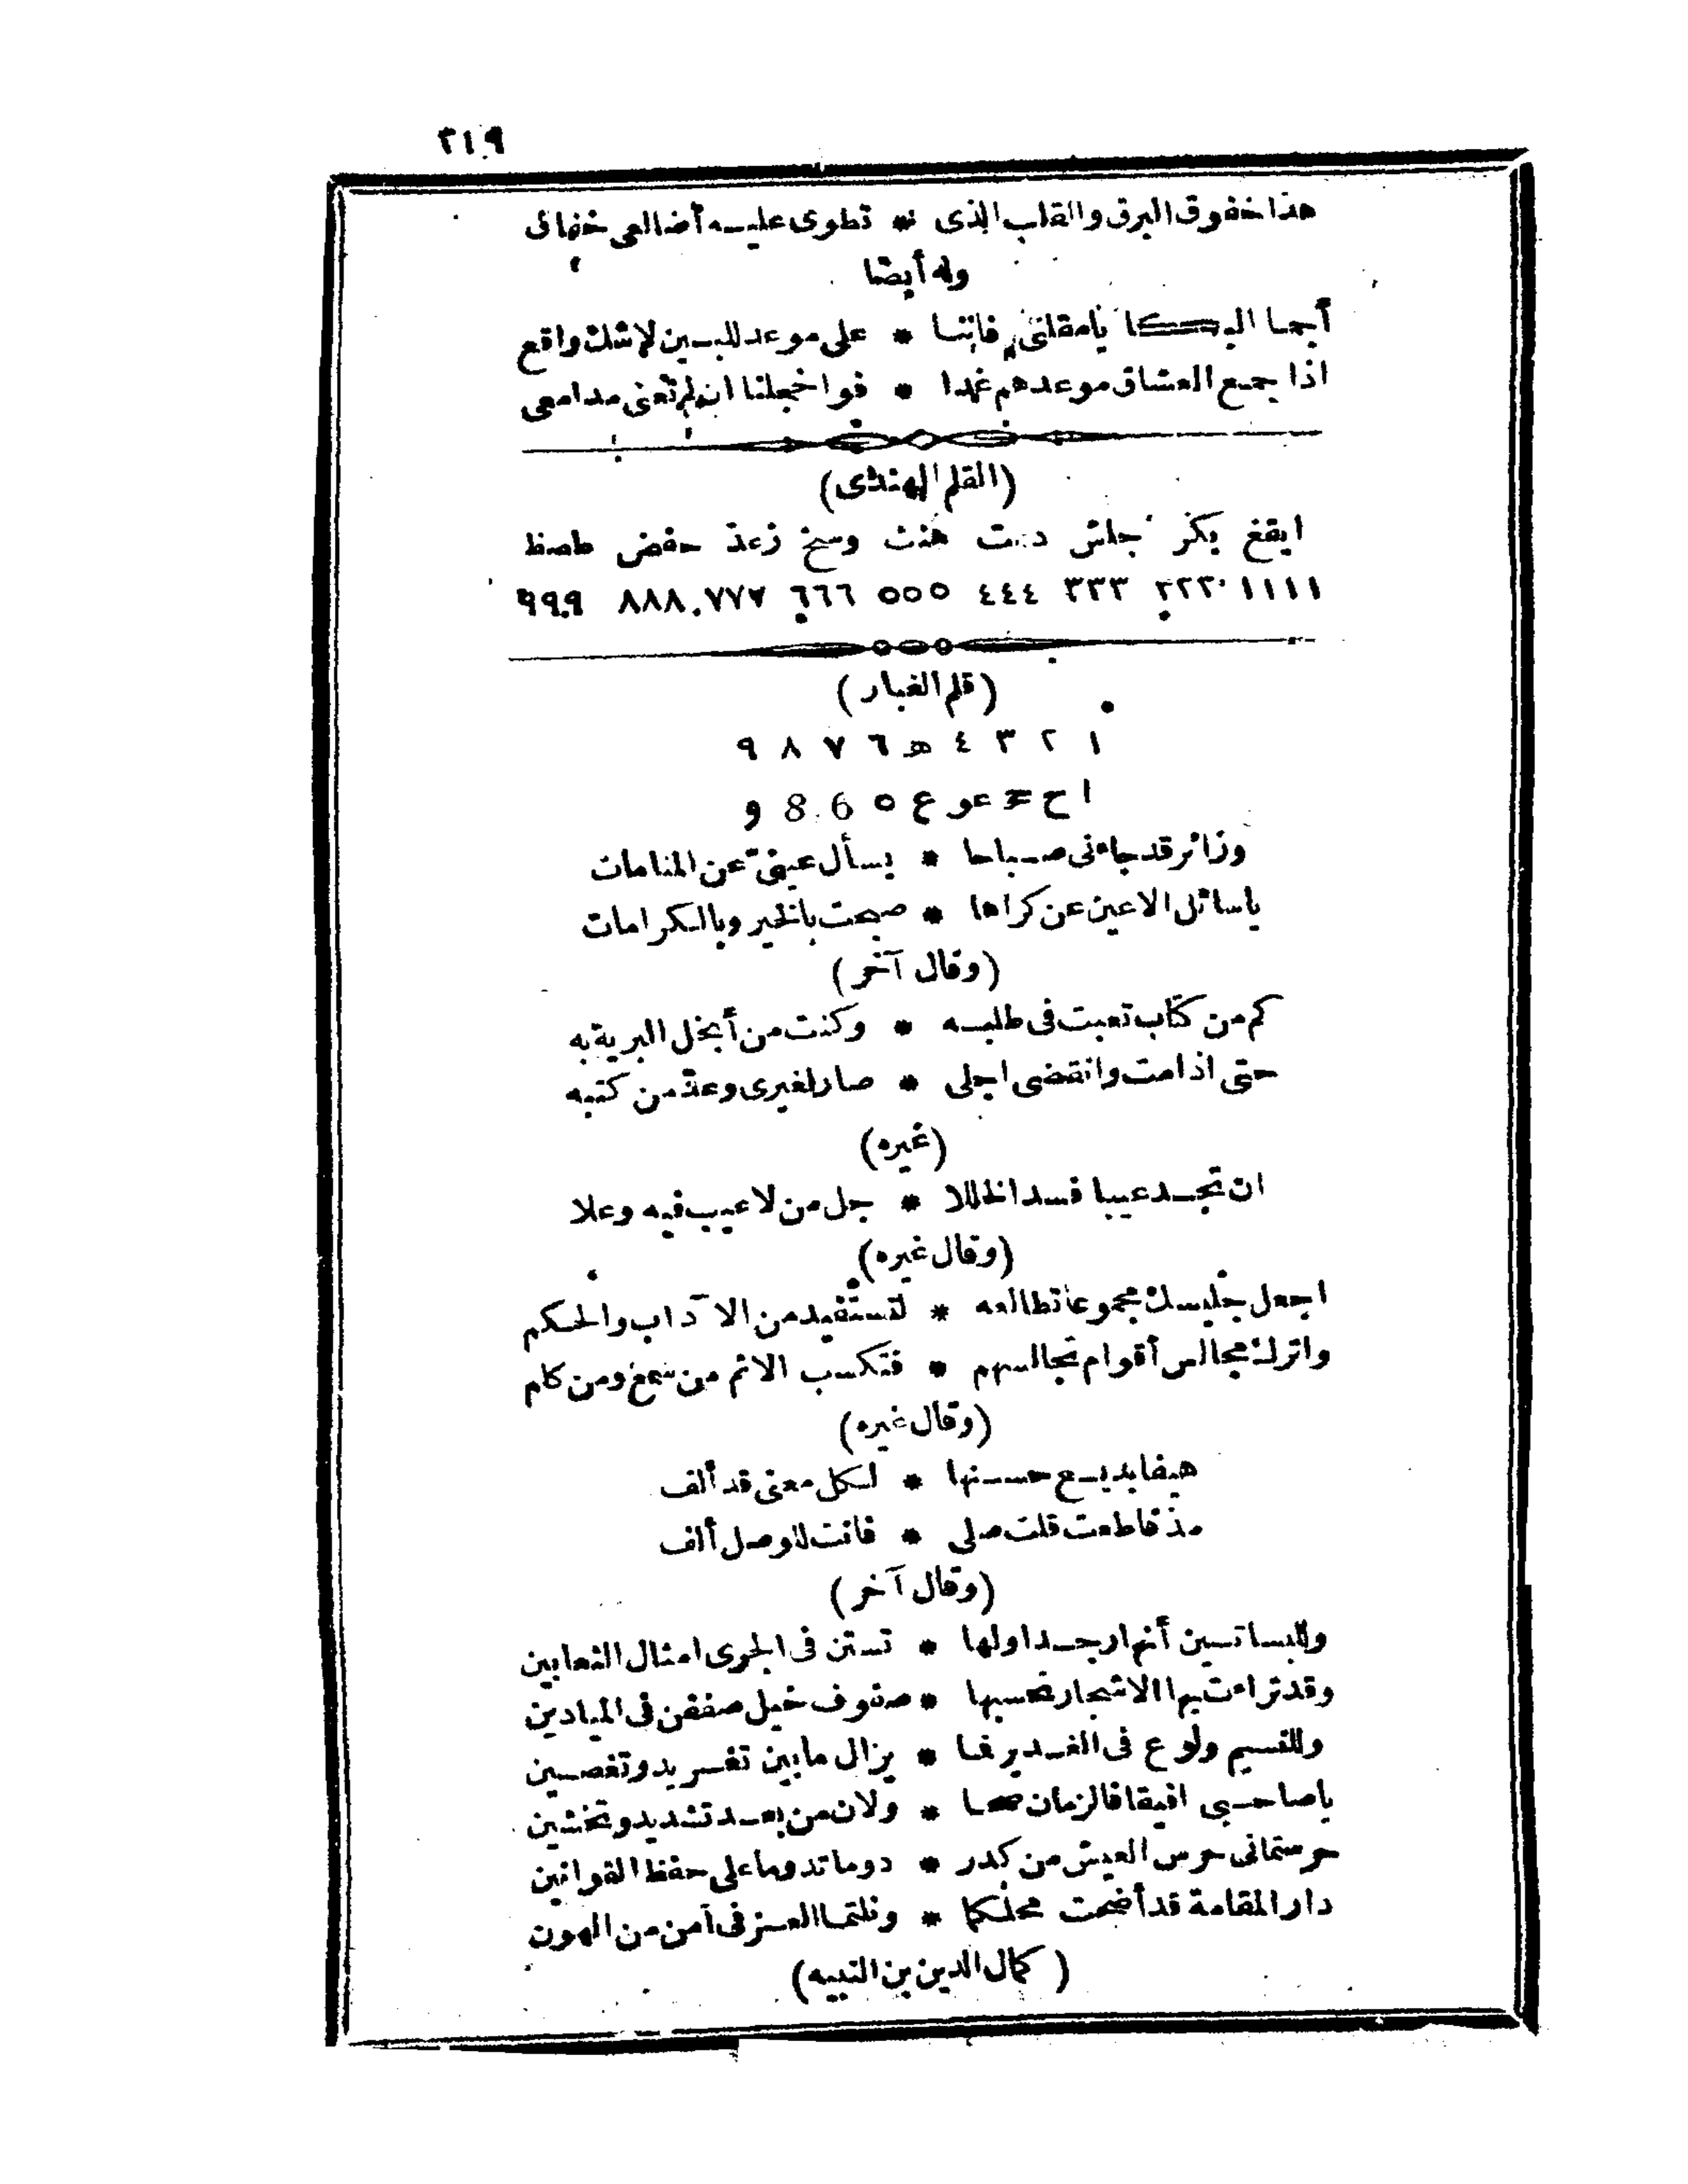 ٣١٩
هذا خفوق البرق والقلب الذى * تطوى عليه أضالعى خفاق
وله أيضا
أجما البكا يا مقلتى فاننا * على موعد للبين لا شك واقع
اذا جمع العشاق موعدهم غدا * فوا خجلنا ان لم تعنى مدامعى
(القلم الهندى)
ايقغ بكر جلش دمت هنث وسخ زعذ حفض طصظ
١١١١ ٢٢٢ ٣٣٣ ٤٤٤ ٥٥٥ ٦٦٦ ٧٧٧ ٨٨٨ ٩٩٩
(قلم الغبار)
١ ٢ ٣ ٤ ه ٦ ٧ ٨ ٩
ا ح عو ع ٥ 6 8 و
وزائر قد جاءنى صباحا * يسأل عينى عن المنامات
ياسائل الاعين عن كراها * صبحت بالخير وبالكرامات
(وقال آخر)
كم من كتاب تعبت فى طلبه * وكنت من أبخل البرية به
حتى اذا مت وانقضى اجلى * صار لغيرى وعد من كتبه
(غيره)
ان تجد عيبا فسد الخللا * جل من لا عيب فيه وعلا
(وقال غيره)
اجعل جليسك مجموعا تطالعه * لتستفيد من الآداب والحكم
واترك مجالس أقوام تجالسهم * فتكسب الاثم من سمع ومن كلم
(وقال غيره)
هيفا بديع حسنها * لكل معنى قد ألف
مذ قاطعت قلت صلى * فانت للوصل ألف
(وقال آخر)
وللبساتين أنهار جداولها * تستن فى الجرى امثال الثعابين
وقد تراءت بها الاشجار تحسبها * صفوف خيل صففن فى الميادين
وللنسيم ولوع فى الغدير فما * يزال ما بين تغريد وتغصين
ياصاحبى افيقا فالزمان صحا * ولان من بعد تشديد وتخشين
حرستمانى حرس العيش من كدر * دوما تدوما على حفظ القوانين
دار المقامة قد أضحت محلكما * ونلتما العز فى آمن من الهون
(كمال الدين بن النبيه)